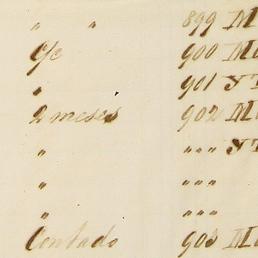 " " 899 M
c/c 900 M
" 901 
2 meses 902 M
" """
" """
" """
Contado 903 M